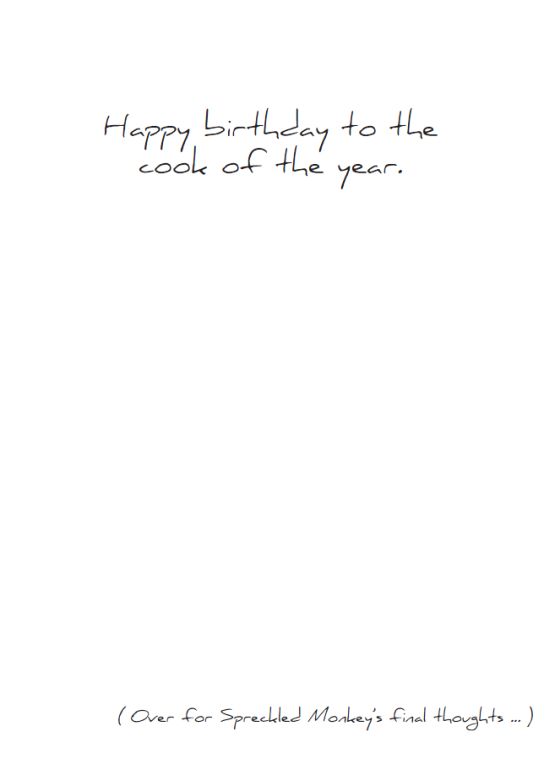 Happy birthday to the
cook of the year.
( Over for Spreckled Monkey's final thoughts ... )